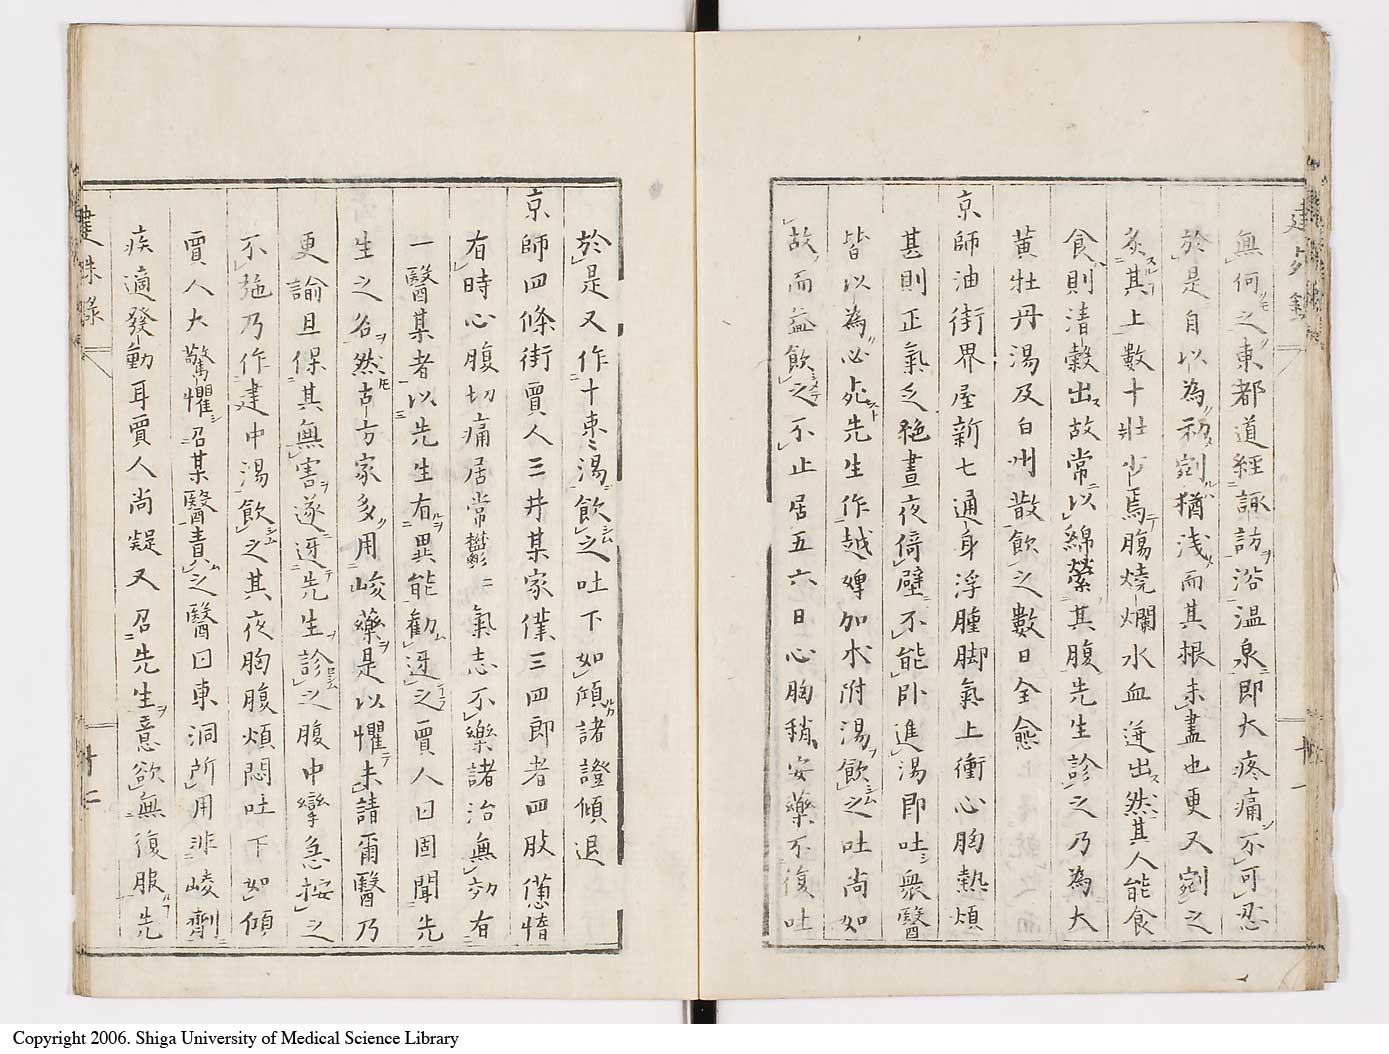 無何之東都道經諏訪浴温泉即大疼痛不可忍
於是自以為初剜猶浅而其根未盡也更又剜之
灸其上數十壮少焉腸燒爛水血迸出然其人能食
食則清穀出故常以綿縈其腹先生診之乃為大
黄牡丹湯及白州散飲之數日全愈
京師油街界屋新七通身浮腫脚氣上衝心胸熱煩
甚則正氣乏絶晝夜倚壁不能卧進湯即吐衆醫
皆以為必死先生作越婢加朮附湯飲之吐尚如
故而益飲之不止居五六日心胸稍安藥不復吐
於是又作十枣湯飲之吐下如傾諸證傾退
京師四條街賈人三井某家僕三四郎者四肢憊惰
有時心腹切痛居常鬱々氣志不樂諸治無効有
一醫某者以先生有異能勸迓之賈人曰固聞先
生之名然古方家多用峻藥是以懼未請爾醫乃
更諭且保其無害遂迓先生診之腹中攣急按之
不弛乃作建中湯飲之其夜胸腹煩悶吐下如傾
賈人大驚懼召某醫責之醫曰東洞所用非峻劑
疾適發動耳賈人尚疑又召先生意欲無復服先
建珠錄
十二
Copyright 2006. Shiga University of Medical Science Library